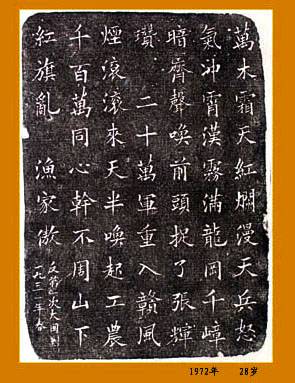 萬木霜天紅爛漫天兵怒
氣冲霄漢霧滿龍岡千嶂
暗齊聲喚前頭捉了張輝
瓚 二十萬軍重入贛風
煙滾滾來天半喚起工農
千百萬同心幹不周山下
紅旗亂 漁家傲
反第一次大围剿
一九三一年春
1972年 28岁